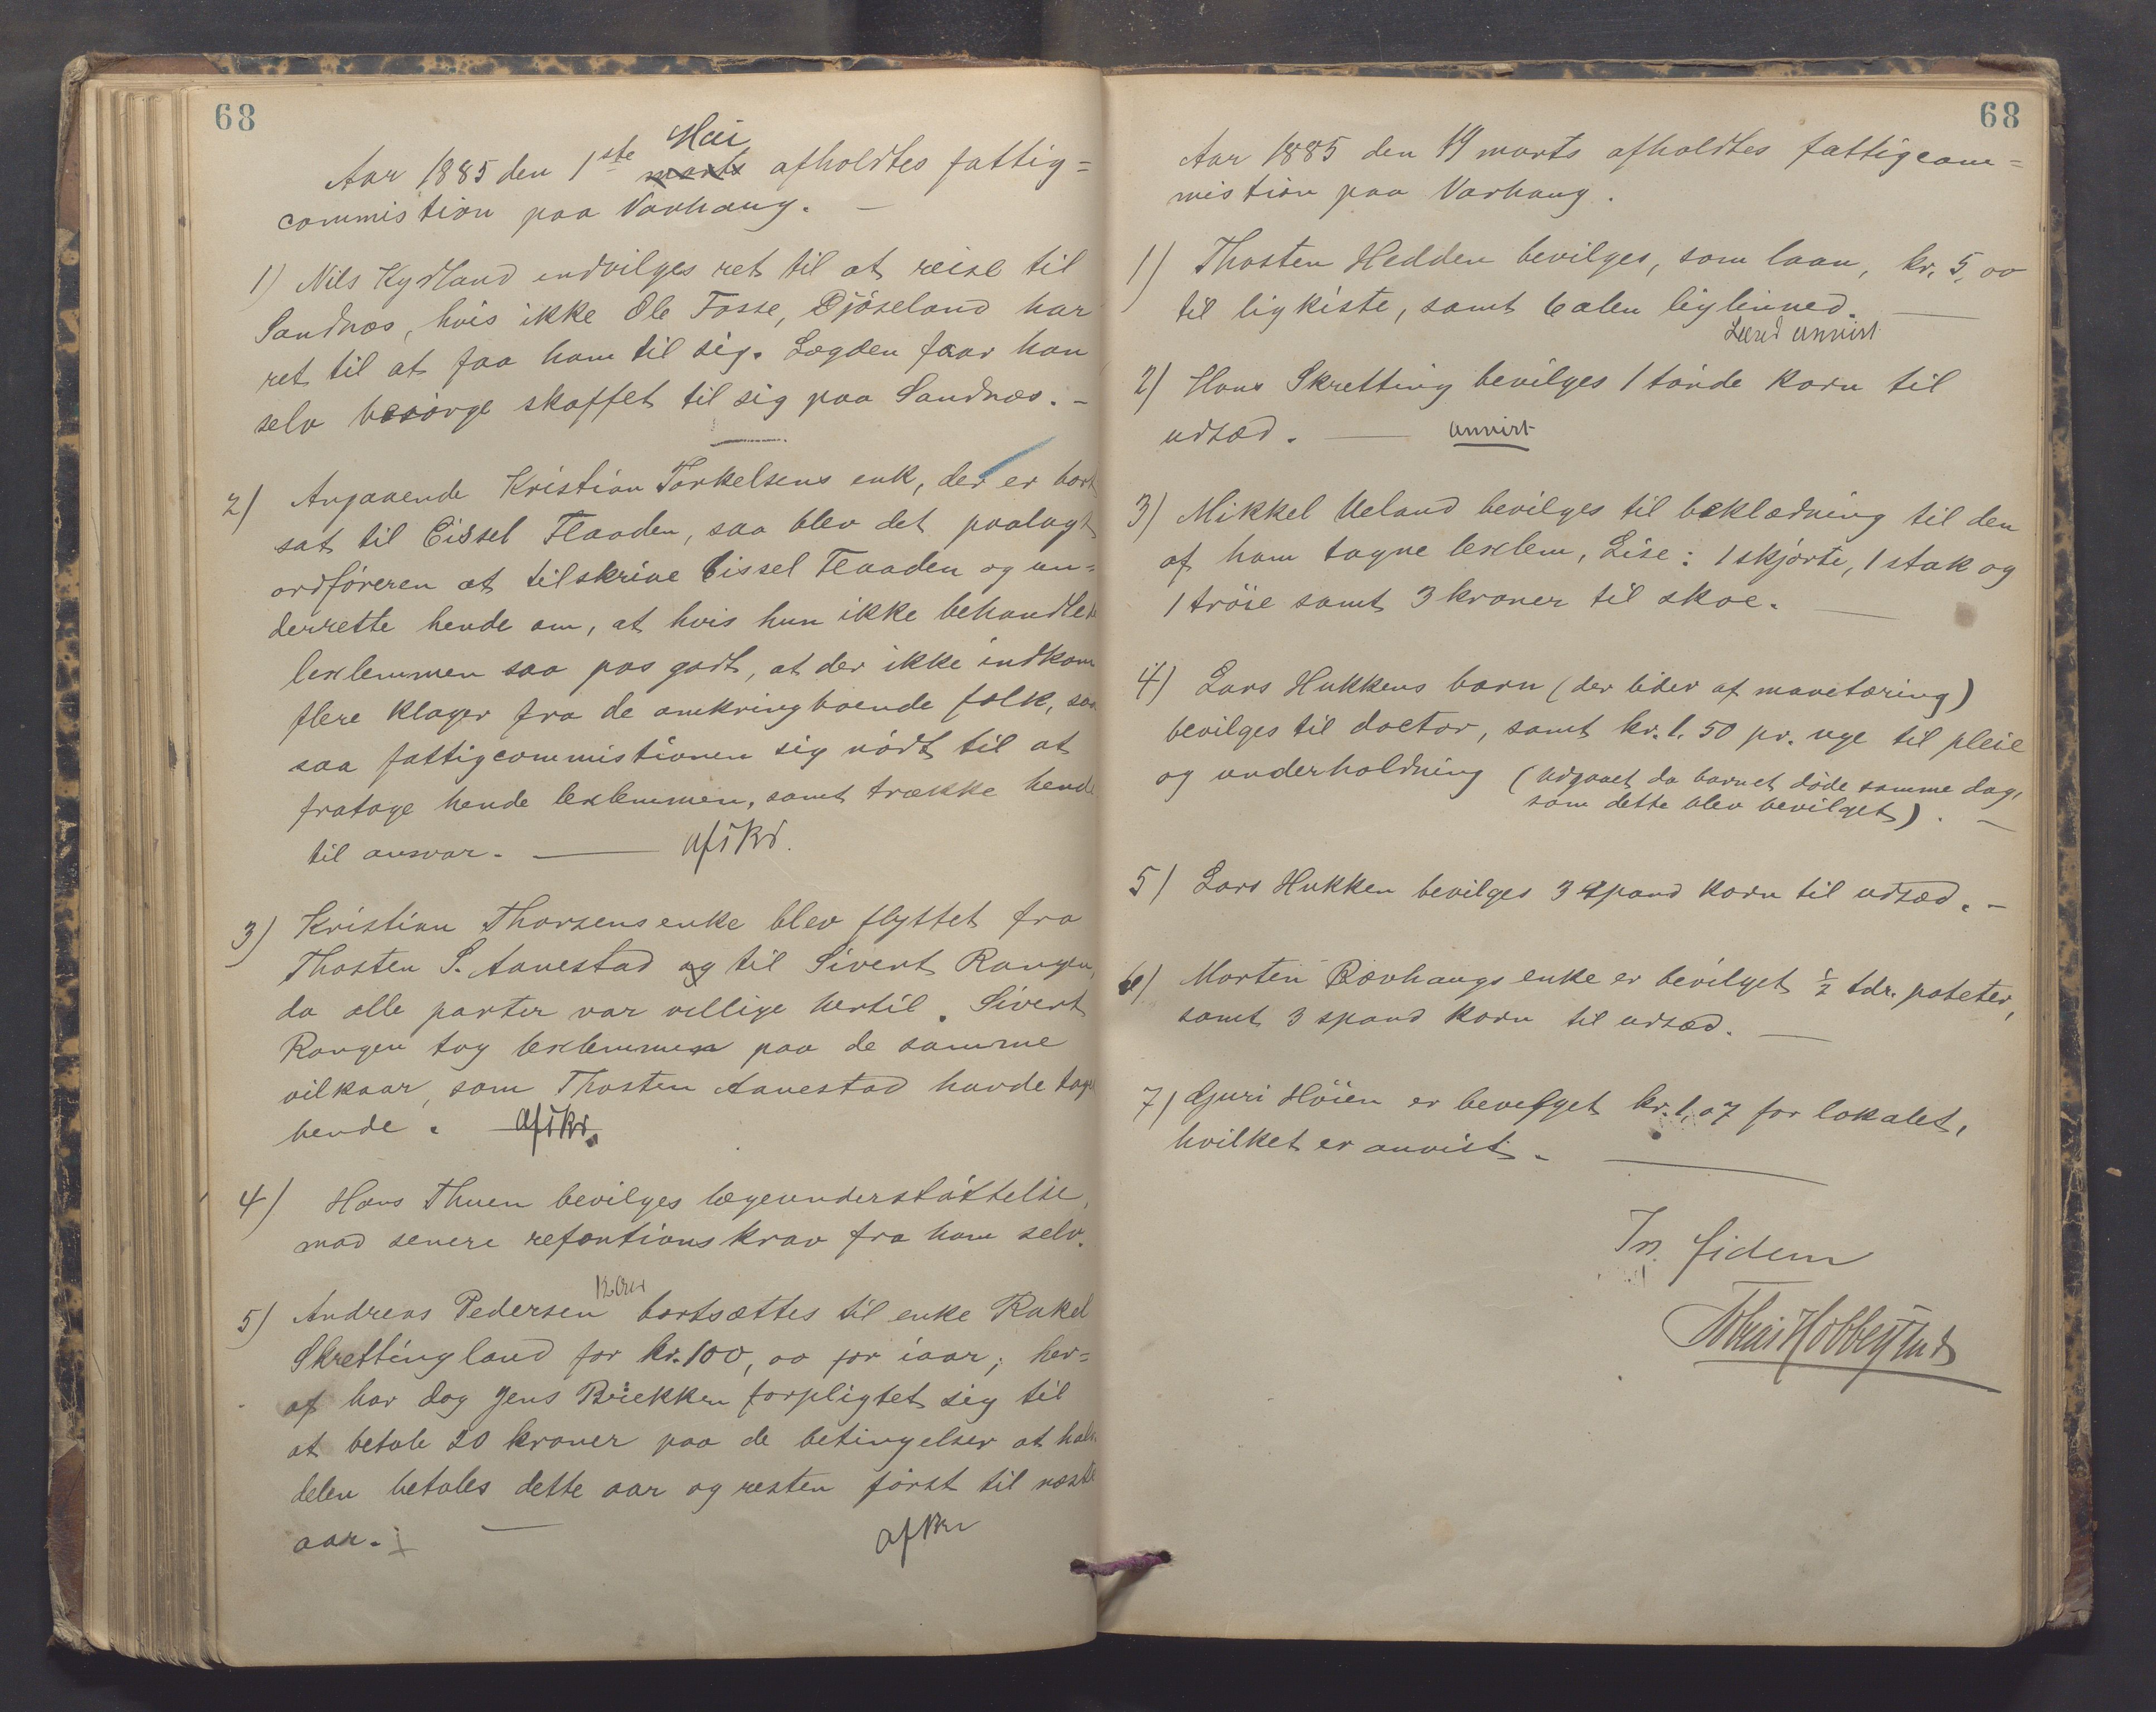 68
Mai
Aar 1885 den 1ste marts afholdtes fattig=
commistion paa Varhaug. —
1) Nils Kydland indvilges ret til at reise til
Sandnæs, hvis ikke Ole Fosse, Gjöseland har
ret til at faa ham til sig. Lægden faar han
selv besörge skaffet til sig paa Sandnæs. —
2) Angaaende Kristian Torkelsens enk, der er bort
sat til Eissel Flaaden, saa blev det paalagt
ordföreren at tilskrive Eissel Flaaden og un=
derrette hende om, at hvis hun ikke behandlede
lexlemmen saa pas godt, at der ikke indkom
flere klager fra de omkringboende folk, saa
saa fattigcommistionen sig nödt til at
fratage hende lexlemmen, samt trække hende
til ansvar. — Afskr.
3) Kristian Thorsens enke blev flyttet fra
Thosten S. Aanestad og til Sivert Rangen,
da alle parter var villige hertil. Sivert
Rangen tog lexlemmen paa de samme
vilkaar, som Thosten Aanestad havde taget
hende. Afskr.
4) Hans Thuen bevilges lægeunderstöttelse,
mod senere refontionskrav fra ham selv.
5) Andreas Pedersen bortsættes til enke Rakel
Skrettingland for kr. 100,00 for iaar; her=
af har dog Jens Brekken forpligtet sig til
at betale 20 kroner paa de betingelser at halv
delen betales dette aar og resten först til næste
aar. — afskr
68
Aar 1885 den 19 marts afholdtes fattigcom=
mistion paa Varhaug.
1) Thosten Hedden bevilges, som laan, kr. 5,00
til ligkiste, samt 6 alen liglinned. —
anvist
2) Hans Skretting bevilges 1 tönde korn til
udsæd. — anvist
3) Mikkel Ueland bevilges til beklædning til den
af ham tagne lexlem, Lise: 1 skjorte, 1 stak og
1 tröie samt 3 kroner til skoe. —
4) Lars Hukkens barn (der lider af mavetæring)
bevilges til doctor, samt kr. 1.50 pr. uge til pleie
og underholdning (Udgaaet da barnet döde samme dag,
som dette blev bevilget). —
5) Lars Hukken bevilges 3 spand korn til udsæd. —
6) Morten Rævhaugs enke er bevilget ½ tdr. poteter,
samt 3 spand korn til udsæd. —
7) Guri Höien er bevelget kr. 1,07 for lokalet,
hvilket er anvist. —
In fidem